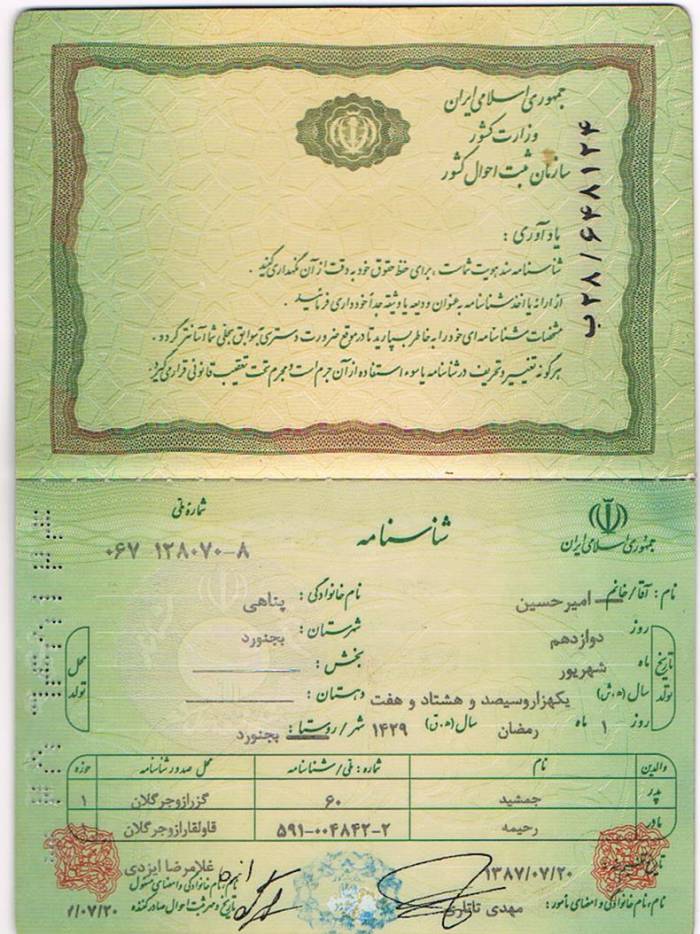 جمهوری اسلامی ایران
وزارت کشور
سازمان ثبت احوال کشور
ب۲۸/۶۴۸۱۲۴
یادآوری :
شناسنامه سند هویت شماست ، برای حفظ حقوق خود به دقت از آن نگهداری کنید .
از ارائه یا اخذ شناسنامه به عنوان ودیعه یا وثیقه جداً خودداری فرمائید .
مشخصات شناسنامه ای خود را به خاطر بسپارید تا در موقع ضرورت دسترسی به سوابق سجلی شما آسانتر گردد .
هرگونه تغییر و تحریف در شناسنامه یا سوء استفاده از آن جرم است و مجرم تحت تعقیب قانونی قرار می گیرد .
جمهوری اسلامی ایران
شناسنامه
شماره ملی
۰۶۷ ۱۲۸۰۷۰-۸
نام : آقا/خانم امیرحسین نام خانوادگی : پناهی
تاریخ تولد
روز دوازدهم شهرستان : بجنورد
ماه شهریور بخش :
سال (ه.ش) یکهزاروسیصد و هشتاد و هفت دهستان :
روز ۱ ماه رمضان سال (ه.ق) ۱۴۲۹ شهر/روستا : بجنورد
محل تولد
والدین نام شماره : ملی/شناسنامه محل صدور شناسنامه حوزه
پدر جمشید ۶۰ گزرازوجرگلان ۱
مادر رحیمه ۵۹۱-۰۰۴۸۴۲-۲ قاولقارازوجرگلان ۱
۱۳۸۷/۰۷/۲۰ غلامرضا ایزدی
نام، نام خانوادگی و امضای مامور : مهدی تاتاری
نام، نام خانوادگی و امضای مسئول
تاریخ و مهر ثبت احوال صادرکننده
/۰۷/۲۰